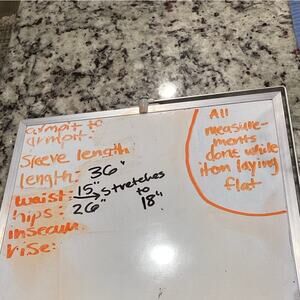 armpit to
armpit:
Sleeve length:
length: 36"
waist: 15" → stretches to 18"
hips: 26"
inseam:
rise:
All
measure-
ments
done while
item laying
flat